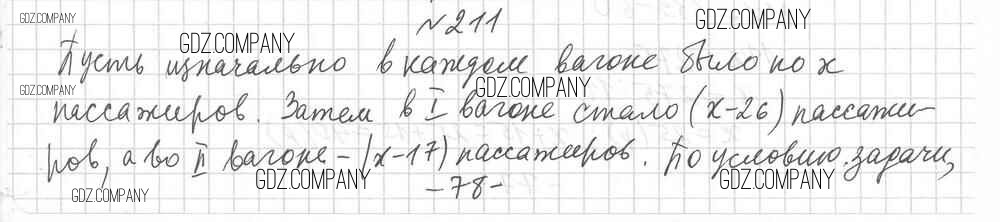 GDZ.COMPANY
№211
GDZ.COMPANY
GDZ.COMPANY
Пусть изначально в каждом вагоне было по x
GDZ.COMPANY
GDZ.COMPANY
пассажиров. Затем в I вагоне стало (x-26) пассажи-
ров, а во II вагоне - (x-17) пассажиров. По условию задачи,
GDZ.COMPANY
GDZ.COMPANY
GDZ.COMPANY
-78-